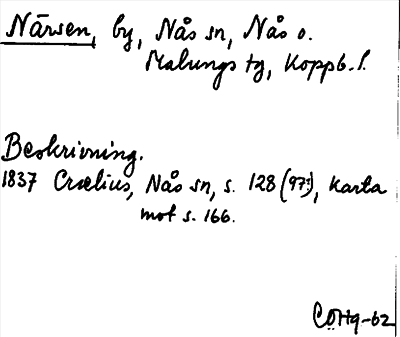 Närsen, by, Nås sn, Nås o.
Malungs tg, Koppb. l.
Beskrivning.
1837 Crælius, Nås sn, s. 128 (97?), karta
mot s. 166.
CÖHg-62